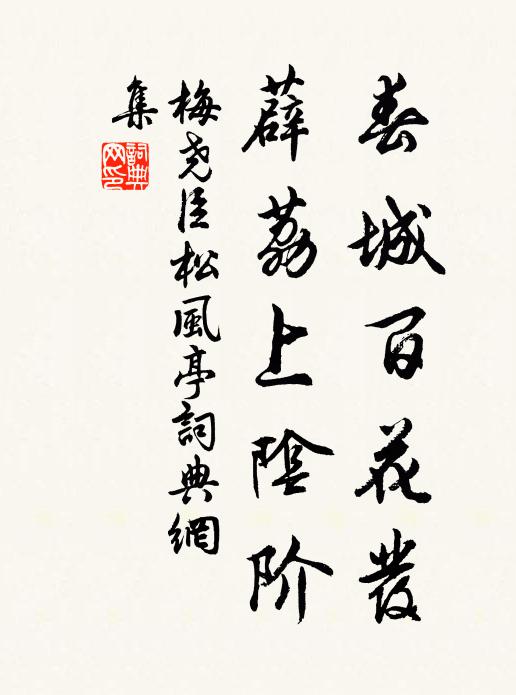 春城百花發
薜荔上陰阶
梅堯臣松風亭詞典網
集
詞典网印